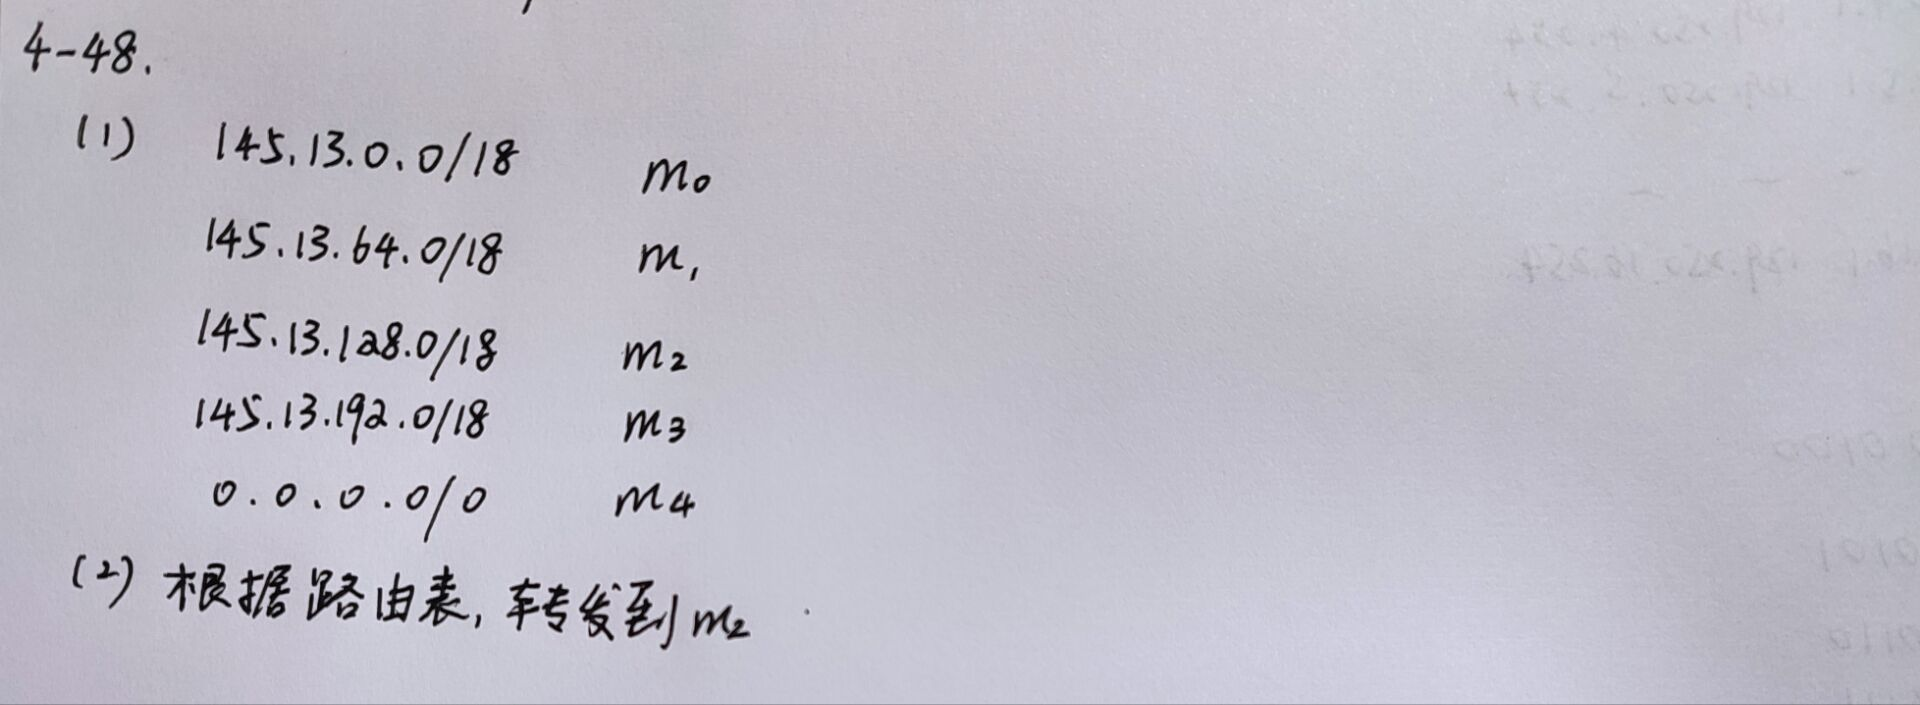 4-48.
(1) 145.13.0.0/18 m0
145.13.64.0/18 m1
145.13.128.0/18 m2
145.13.192.0/18 m3
0.0.0.0/0 m4
(2) 根据路由表,转发到m2